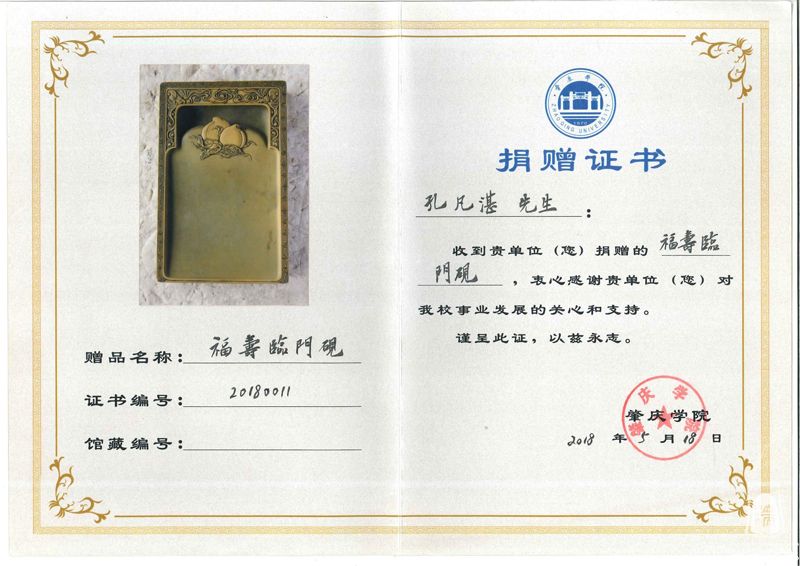 赠品名称：福壽臨門硯
证书编号：20180011
馆藏编号：
肇庆学院
ZHAOQING UNIVERSITY
1970
捐赠证书
孔凡湛 先生：
收到贵单位（您）捐赠的 福壽臨
門硯 ，衷心感谢贵单位（您）对
我校事业发展的关心和支持。
谨呈此证，以兹永志。
肇庆学院
肇庆学院
2018 年 5 月 18 日